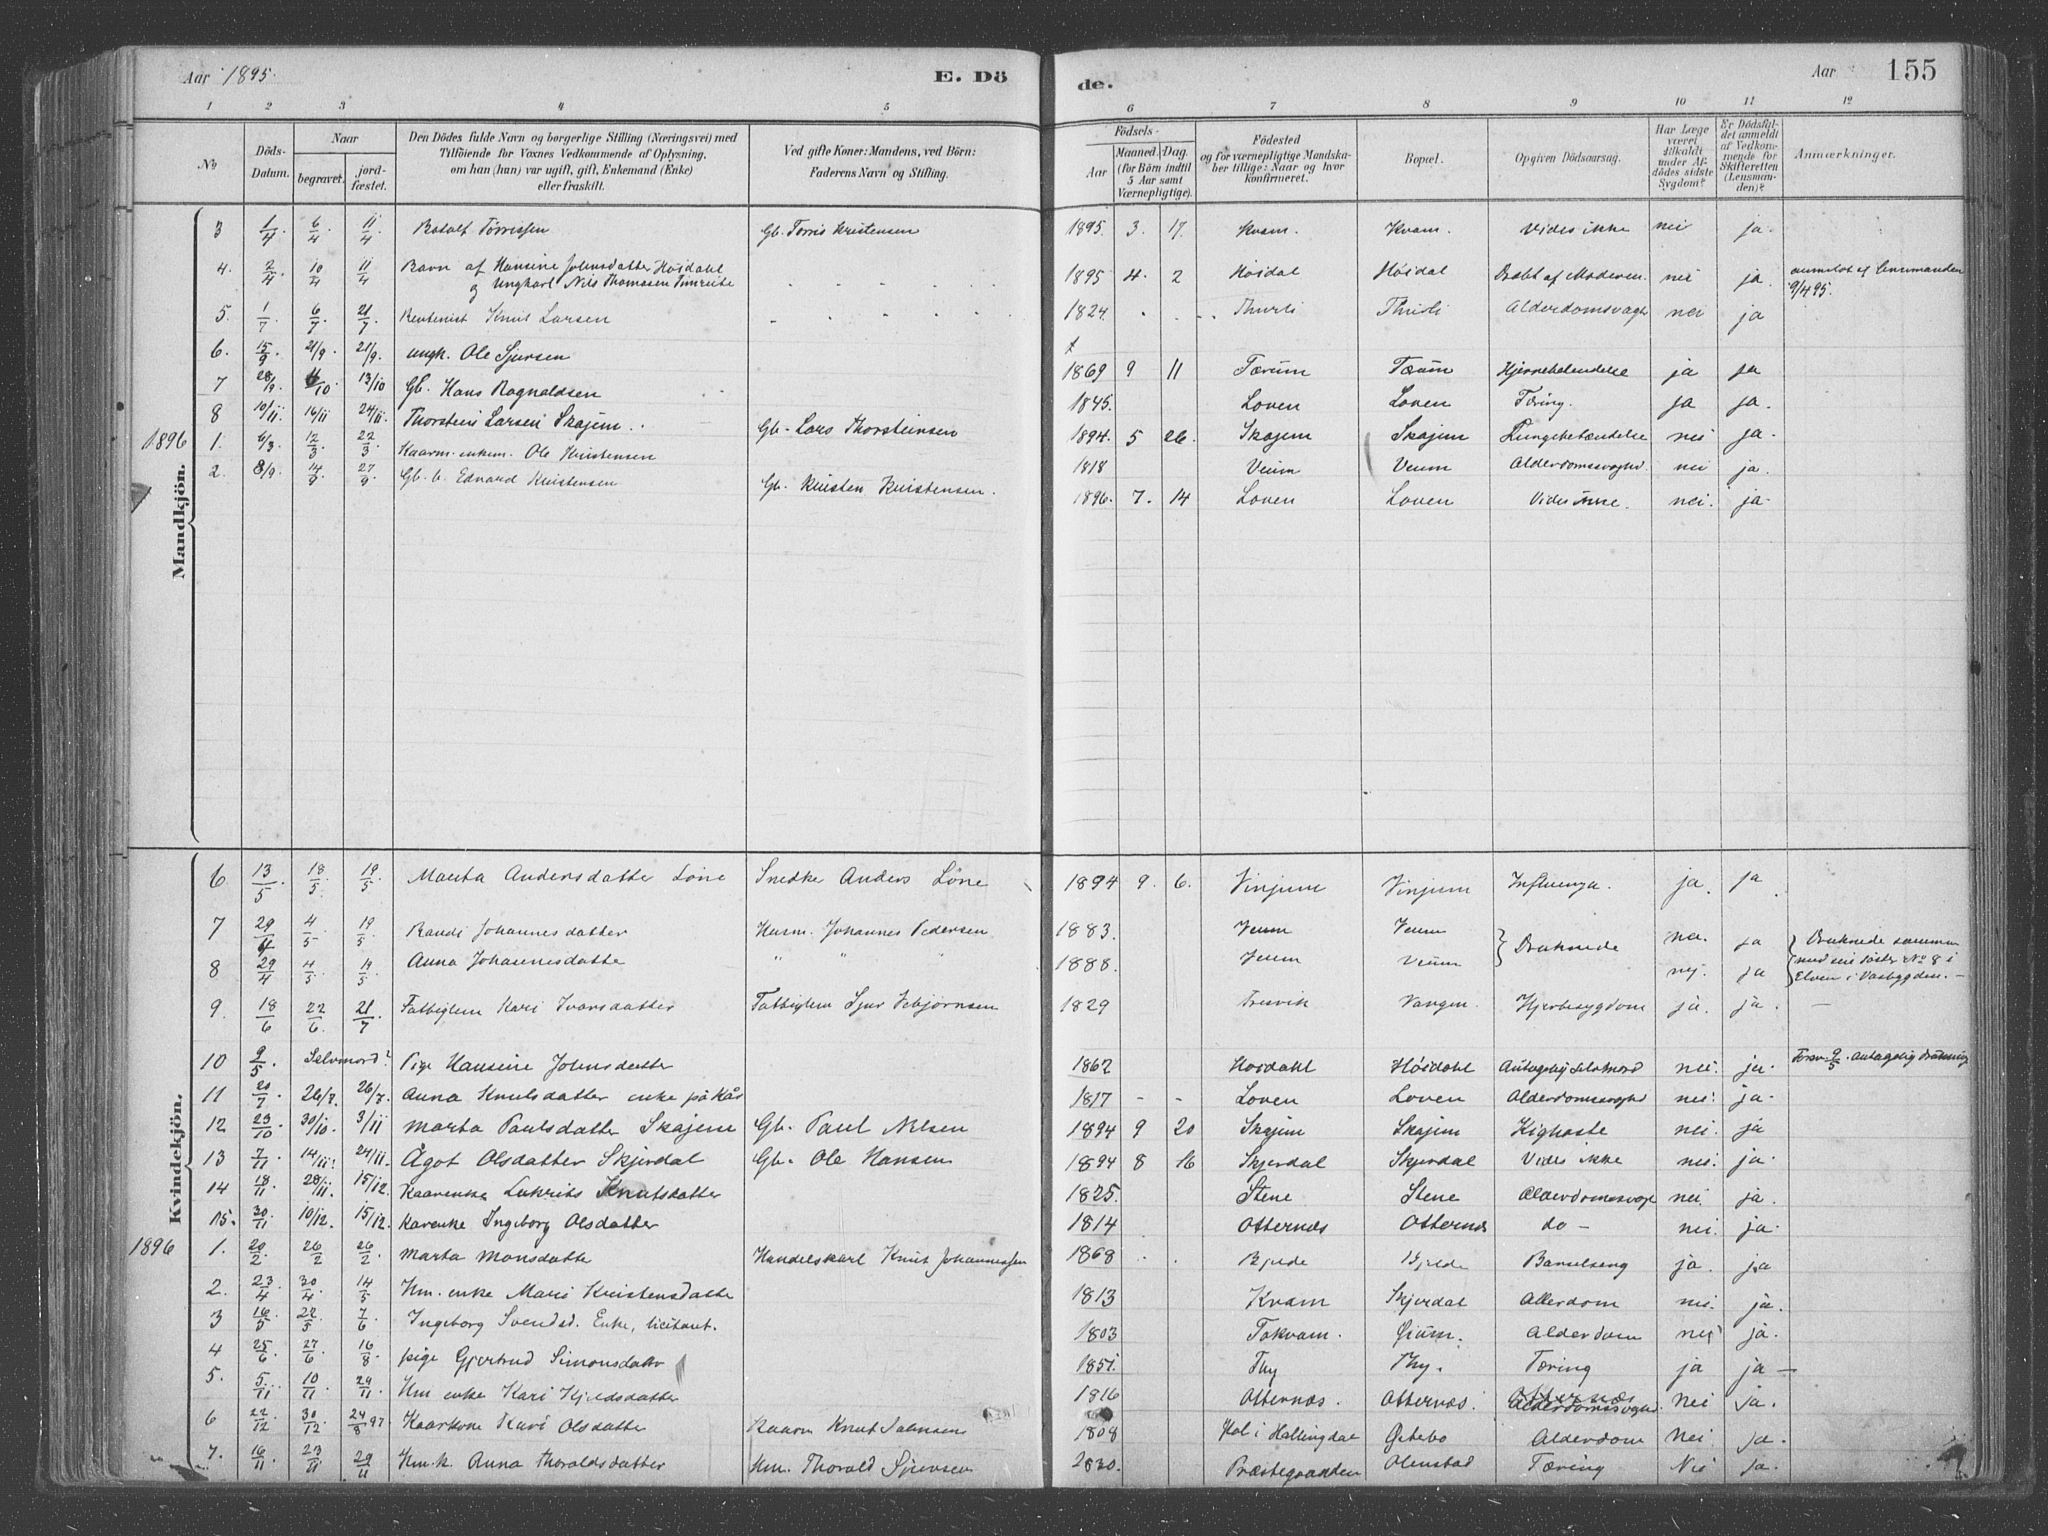 Aar 1895. E. Dö
de. Aar 155
1 2 3 4 5 6 7 8 9 10 11 12
No Döds-Datum. Naar begravet. jordfæstet. Den Dödes fulde Navn og borgerlige Stilling (Næringsvei) med Tilföiende for Voxnes Vedkommende af Oplysning, om han (hun) var ugift, gift, Enkemand (Enke) eller fraskilt. Ved gifte Koner: Mandens, ved Börn: Faderens Navn og Stilling. Födsels- Aar Maaned. Dag. (for Börn indtil 5 Aar samt Værnepligtige). Födested og for værnepligtige Mandskaber tillige: Naar og hvor konfirmeret. Bopæl. Opgiven Dödsaarsag. Har Læge været tilkaldt under Afdödes sidste Sygdom? Er Dödsfaldet anmeldt af Vedkommende for Skifteretten (Lensmanden)? Anmærkninger.
Mandkjön.
3 1/4 6/4 11/4 Botolf Törrissen Gb. Törris Kristensen 1895. 3. 17. Kvam. Kvam. Vides ikke nei ja.
4. 2/4 10/4 11/4 Barn af Hansine Johnsdatter Höidahl 1895 4. 2 Höidal Höidal Dræbt af Moderen. nei ja. anmeldt af Lensmanden
og Ungkarl Nils Thomasen Timreite 9/4 95.
5. 1/7 6/7 21/7 Knut Larsen 1824. Alderdomsvagh nei ja
6. 15/9 21/9 21/9. ungk. Ole Sjursen 1869 9 11 Tærum Tærum Hjernebetendelse ja ja
7 28/9. /10. 13/10 Gb. Hans Ragnaldsen 1845. Loven Loven Tæring. ja ja.
8 10/11 16/11 24/11. Thorstein Larsen Skajem Gb. Lars Thorsteinsen 1894. 5 26. Skajem Skajem Lungebetændelse nei ja.
1896 1. 6/3. 12/3 22/3 Kaarm. enkem. Ole Kristensen 1818 Veum Veum Alderdomssvaghd nei ja.
2. 8/9. 14/9 27/9 Gb. b. Edvard Kristensen Gb. Kristen Kristensen. 1896. 7. 14 Loven Loven Vides nei. ja.
Kvindekjön.
6 13/5 18/5. 19/5. Marta Andersdatter Löne Snedke Anders Löne 1894 9. 6. Vinjum Vinjum Influenza. ja. ja
7 29/4 4/5 19/5. Randi Johannesdatter Husm. Johannes Pedersen 1883. Veum Veum Druknede nei. ja Druknede sammen
8 29/4 4/5 19/5 Anna Johannesdatte " " " 1888. Veum Veum nej. ja med sin söster No 8 i
Elven i Vasbygden.
9. 18/6 22/6. 21/7 Fattiglem Kari Ivarsdatter Fattiglem Sjur 1829 Fresvik Vangen. Hjertesygdom ja. ja.
10 9/5 Selvmord? Pige Hansine Johnsdatter 1862 Höidahl Höidahl Antagelig Selvmord nei. ja. 9/5. antagelig drukning
11 20/7 26/7. 26/7. Anna Knutsdatter enke på Kår 1817 - - Loven Loven Alderdomssvaghd nei. ja.
12 23/10 30/10. 3/11 Marta Paulsdatter Skajem Gb. Paul Nilsen 1894 9 20 Skajem Skajem Kighoste nei. ja
13 7/11 14/11. 24/11. Ågot Olsdatter Skjerdal Gb. Ole Hansen 1894 8 16 Skjerdal Skjerdal Vides ikke nei. ja.
14 18/11 28/11. 15/12. Kaarenke Lukrits Knutsdatter 1825. Stene Stene Alderdomssvagh nei. ja.
15. 30/11 10/12. 15/12. Karenke Ingeborg Olsdatter 1814 Otternæs Otternæs do - nei ja.
1896 1. 20/2. 26/2 26/2. Marta Monsdatte Handelskarl Knut Johannessen 1868 Bjelde Bjelde Barselseng ja. ja
2. 23/4 30/4. 14/5 Hm. enke Mari Kristensdatte 1813 Kvam Skjerdal Alderdom nei. ja.
3 16/5 22/5 7/6 Ingeborg Svendsd. Enke, 1803 Tokvam. Alderdom nei ja.
4 25/6 27/6. 16/8. pige Gjertrud Simonsdatr 1851. Thy Thy. Tæring ja ja -
5. 5/11 10/11. 29/11. Hm enke Kari Hjeldsdatter 1816 Otternæs. Otternæs. Alderdomssvaghd. nei ja.
6 22/12 30/12 24/8 97 Kaarkone Kari Olsdatter Kaarm Knut 1808 Hol i Hallingdal Alderdom nei ja.
7. 16/11 23/11 29/11 Hm. k. Anna Thoraldsdatter Hm. Thorald Sjursen 1830. Præstegaarden Tæring Nei ja.